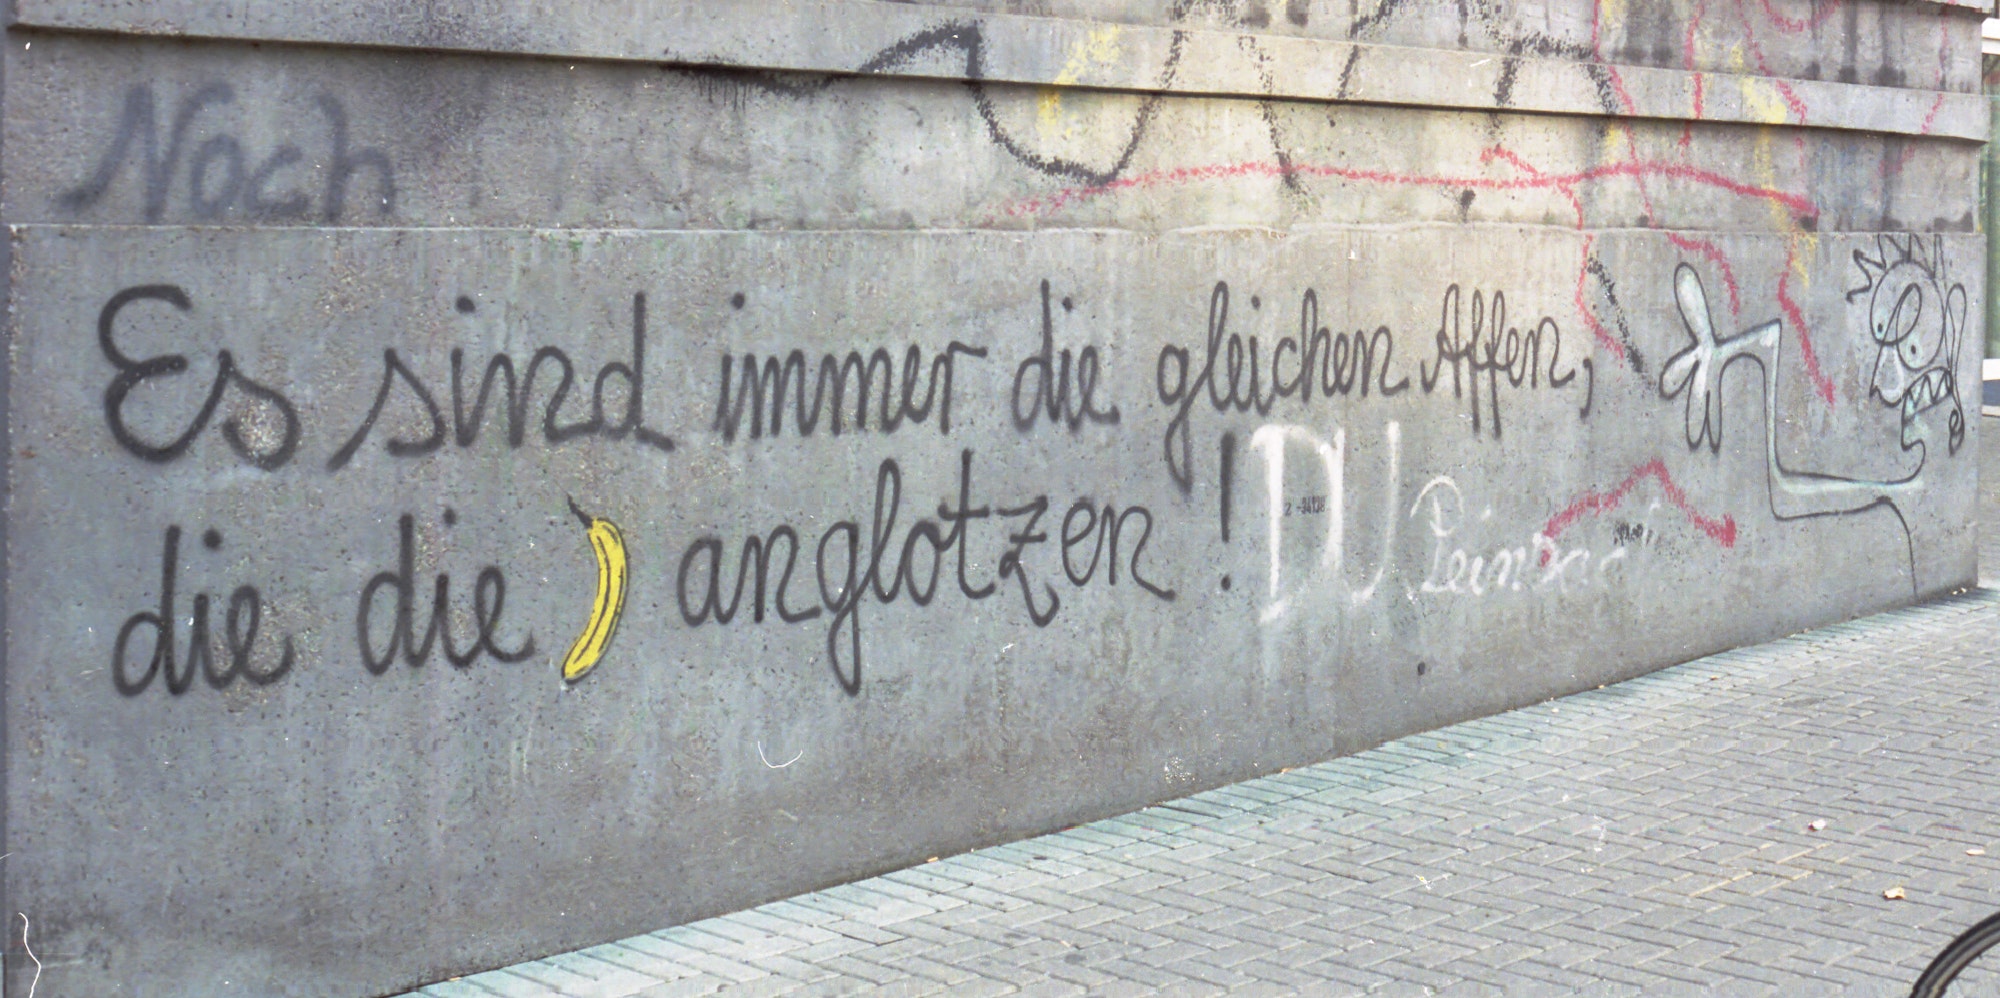 Noch
Es sind immer die gleichen Affen,
die die anglotzen!
DU